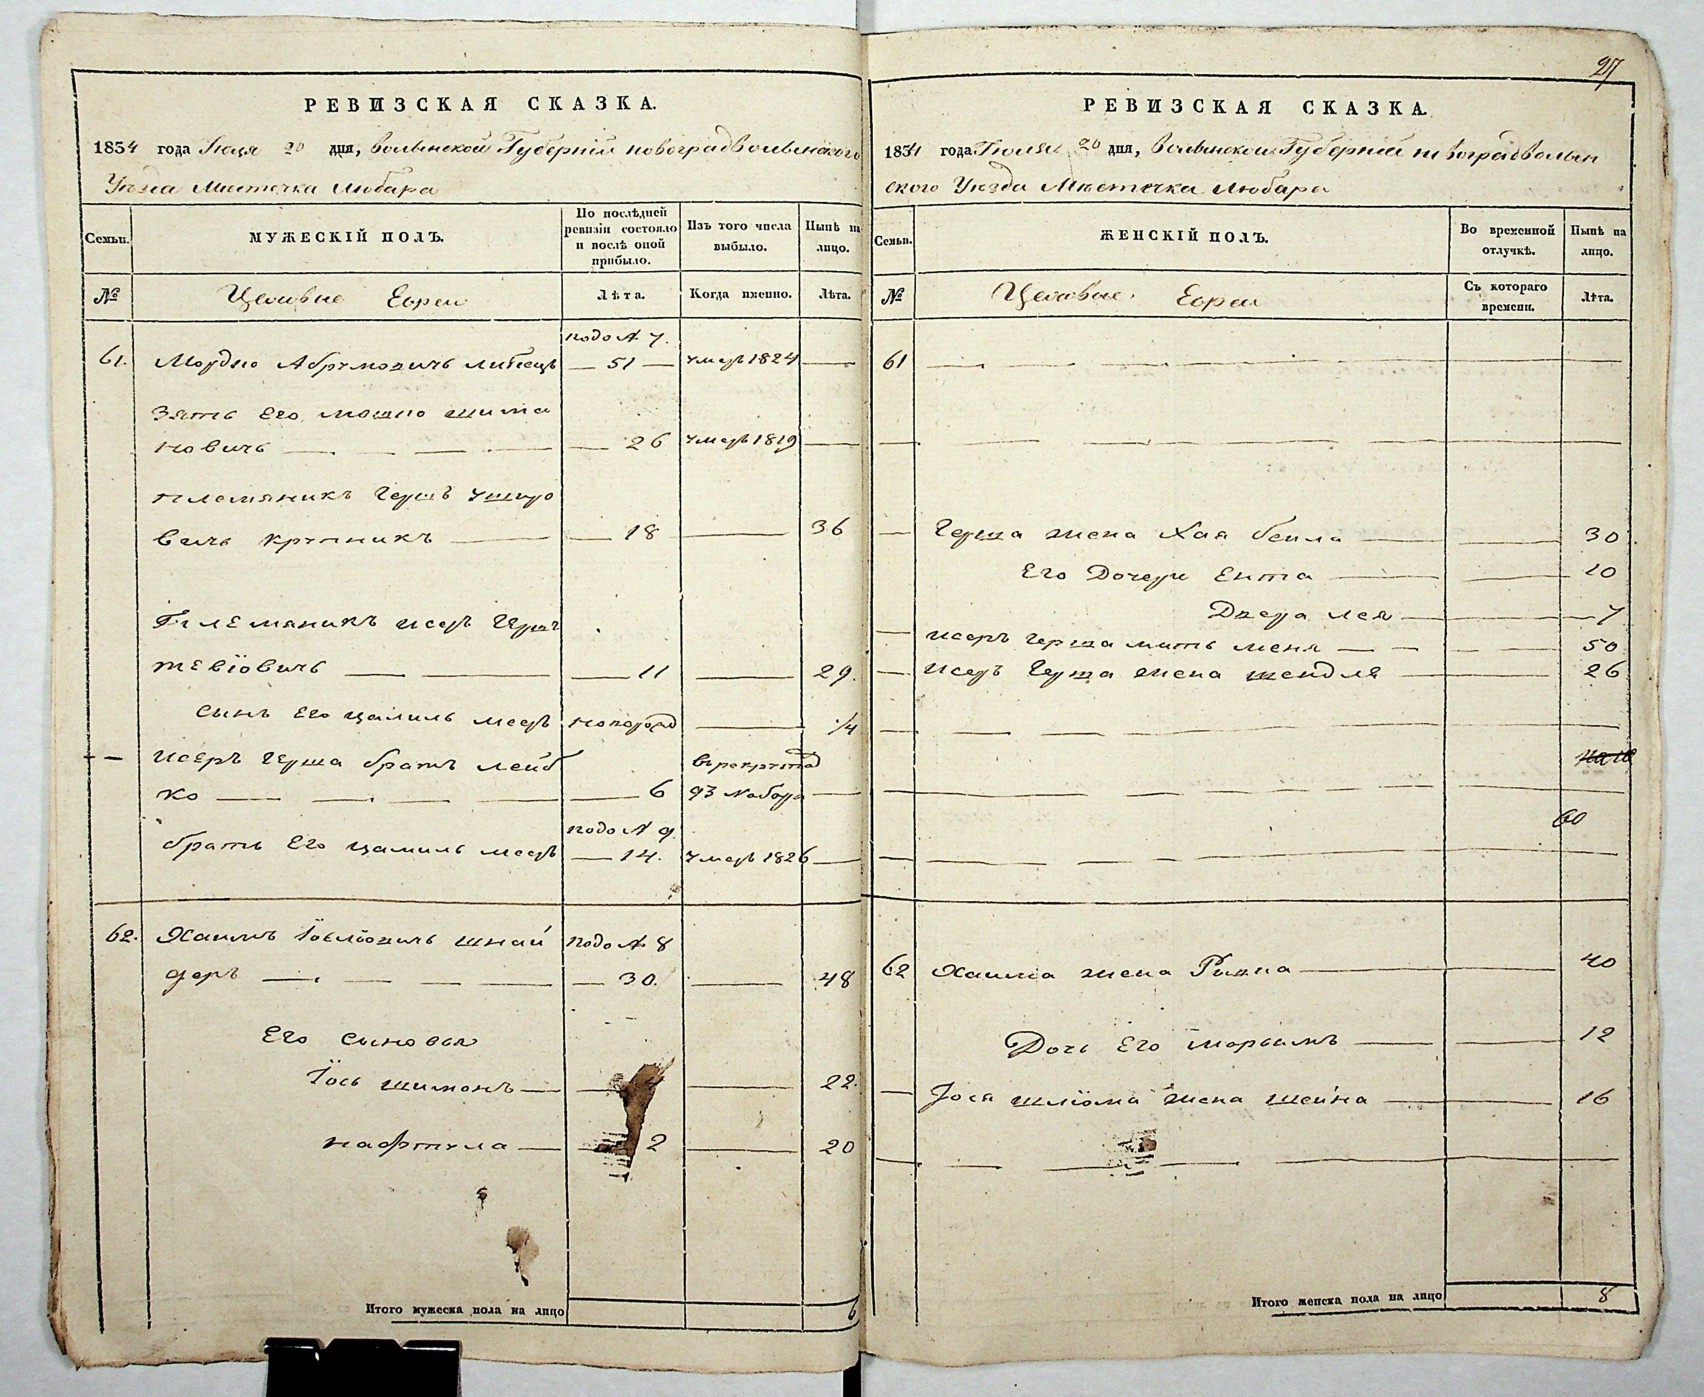 РЕВИЗСКАЯ СКАЗКА.
1834 года Июля 20 дня, волынской Губерніи новоградволынского
Уезда Местечка Любара
Семьи.
МУЖЕСКІЙ ПОЛЪ.
По послѣдней ревизіи состояло и послѣ оной прибыло.
Изъ того числа выбыло.
Нынѣ на лицо.
№
Евреи
Лѣта.
Когда именно.
Лѣта.
подо № 7.
61. Мордко Абрумовичъ — 51 — умеръ 1824 —
зять Его мошко шима
новичъ — 26 умеръ 1819 —
племяникъ Гершъ
вичъ — 18 — 36
Племяникъ исеръ Гершъ
тевіовичъ — 11 — 29.
сынъ Его цалиль мееръ новорожд — 1/4
исеръ Герша братъ лейб
ко — 6 93 набора —
подо № 9
братъ Его цалиль мееръ — 14. умеръ 1826 —
62. Хаимъ Іосіовичъ шнай подо № 8
деръ — 30. — 48
Его сыновья
Іось шимонъ — 22.
нафтула — 2 — 20
Итого мужеска пола на лицо 6
27
РЕВИЗСКАЯ СКАЗКА.
1834 года Июля 20 дня, волынской Губерніи новоградволын
ского Уезда Мѣстечка Любара
Семьи.
ЖЕНСКІЙ ПОЛЪ.
Во временной отлучкѣ.
Нынѣ на лицо.
№
Евреи
Съ котораго времени.
Лѣта.
61
Герша жена Хая бейла — 30
Его Дочери Ента — 10
Двера лея — 7
исеръ герша мать меня — 50
исеръ Герша жена шендля — 26
60
62 Хаима жена Ривка — 40
Дочь Его марьямъ — 12
Іося шліома жена шейна — 16
Итого женска пола на лицо 8